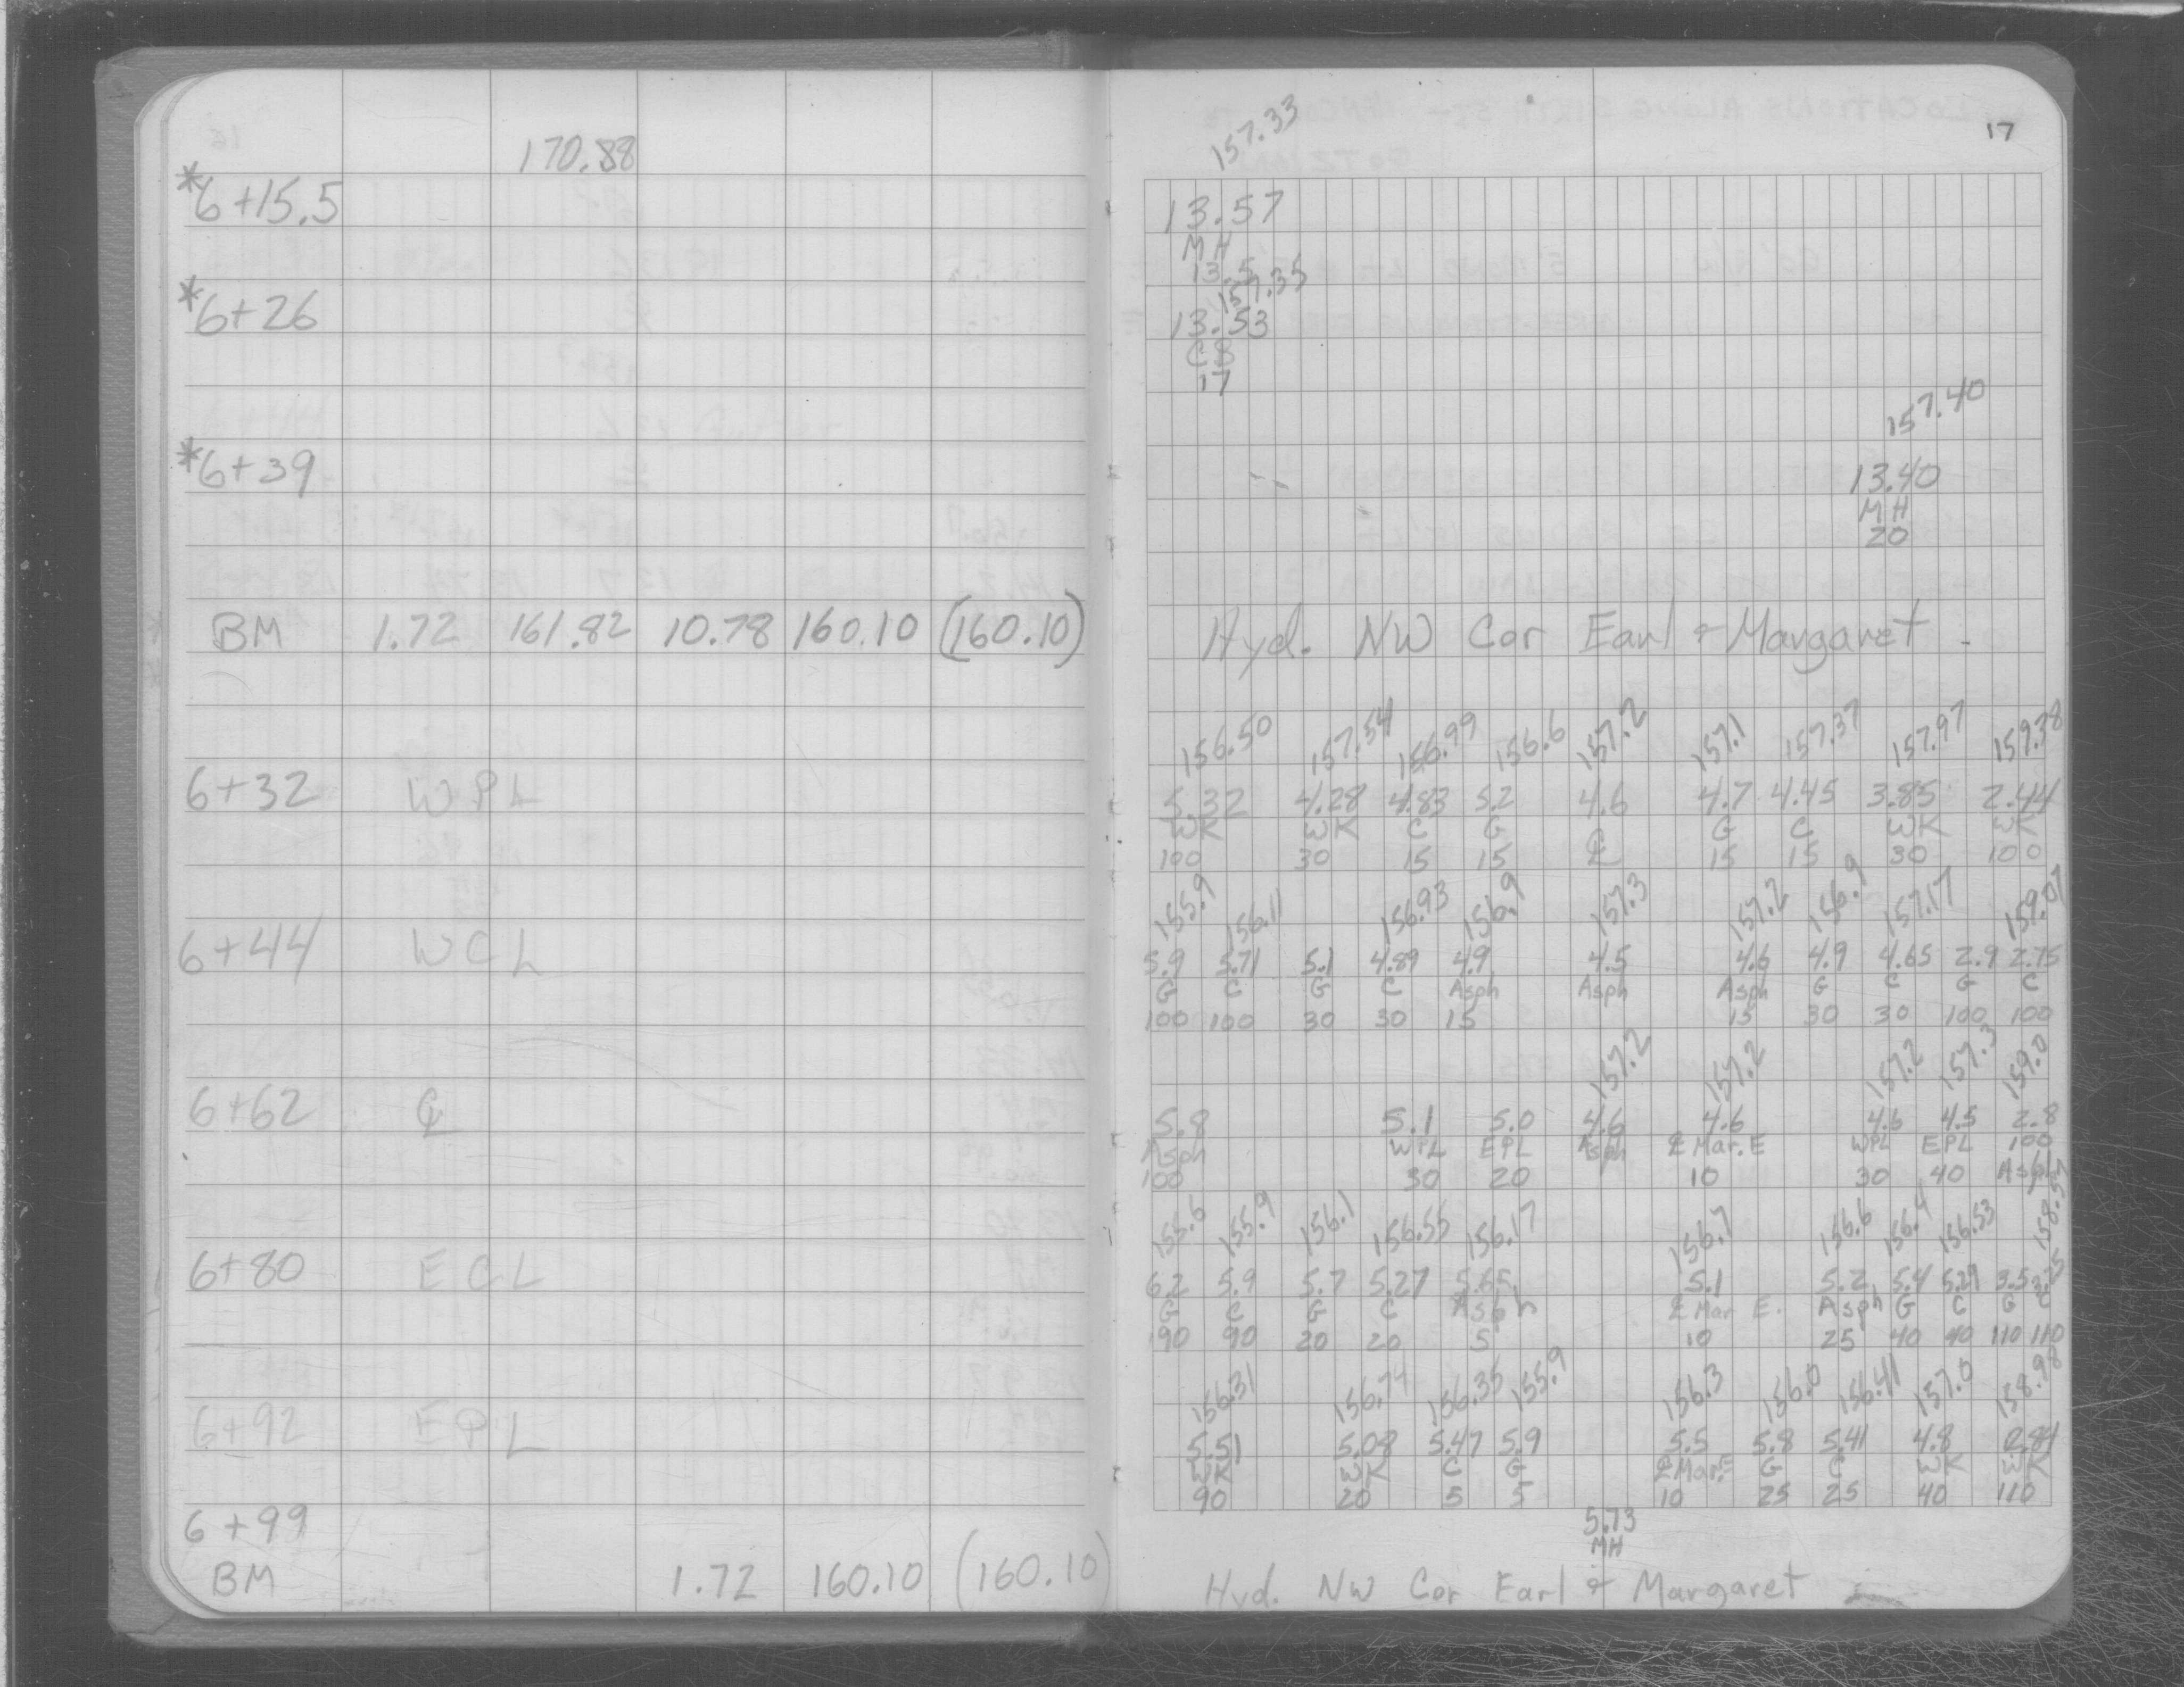 17
170.88
157.33
*6+15.5 13.57
MH
13.5
157.35
*6+26 13.53
CB
17
157.40
*6+39 13.40
MH
20
BM 1.72 161.82 10.78 160.10 (160.10) Hyd. NW Cor Earl & Margaret
156.50 157.54 156.99 156.6 157.2 157.1 157.37 157.97 159.38
6+32 WPL 5.32 4.28 4.83 5.2 4.6 4.7 4.45 3.85 2.44
WK WK C G ℄ G C WK WK
100 30 15 15 15 15 30 100
155.9 156.11 156.93 156.9 157.3 157.2 156.9 157.17 159.07
6+44 WCL 5.9 5.71 5.1 4.89 4.9 4.5 4.6 4.9 4.65 2.9 2.75
G C G C Asph Asph Asph G C G C
100 100 30 30 15 15 30 30 100 100
157.2 157.2 157.2 157.3 159.0
6+62 ℄ 5.8 5.1 5.0 4.6 4.6 4.6 4.5 2.8
Asph WPL EPL Asph ℄ Mar. E WPL EPL 100
100 30 20 10 30 40 Asph
155.6 155.9 156.1 156.55 156.17 156.7 156.6 156.4 156.53
6+80 ECL 6.2 5.9 5.7 5.27 5.65 5.1 5.2 5.4 5.29 3.5
G C G C Asph ℄ Mar E. Asph G C G C
190 90 20 20 5 10 25 40 40 110 110
156.31 156.74 156.35 155.9 156.3 156.0 156.41 157.0 158.98
6+92 EPL 5.51 5.08 5.47 5.9 5.5 5.8 5.41 4.8 2.84
WK WK C G ℄ Mar. E G C WK WK
90 20 5 5 10 25 25 40 110
6+99 5.73
MH
BM 1.72 160.10 (160.10) Hyd. NW Cor Earl & Margaret